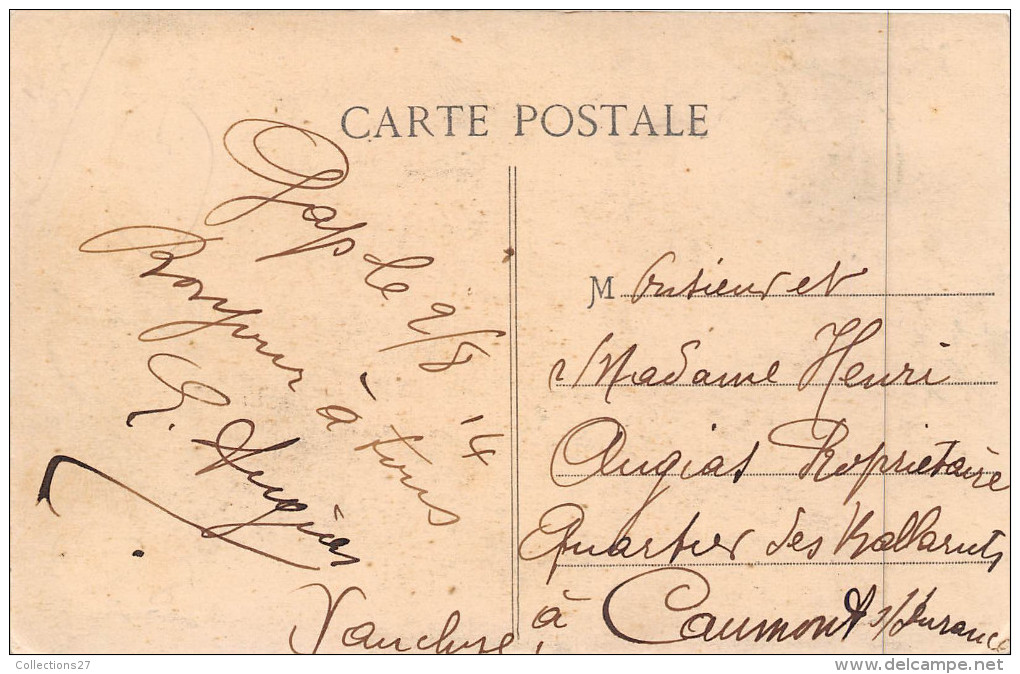 CARTE POSTALE
Gap le 9/8 14
Bonjour à tous
E. Augias
Monsieur et
Madame Henri
Augias Propriétaire
Quartier des
à Caumont s/Durance
Vaucluse
Collections27
www.delcampe.net